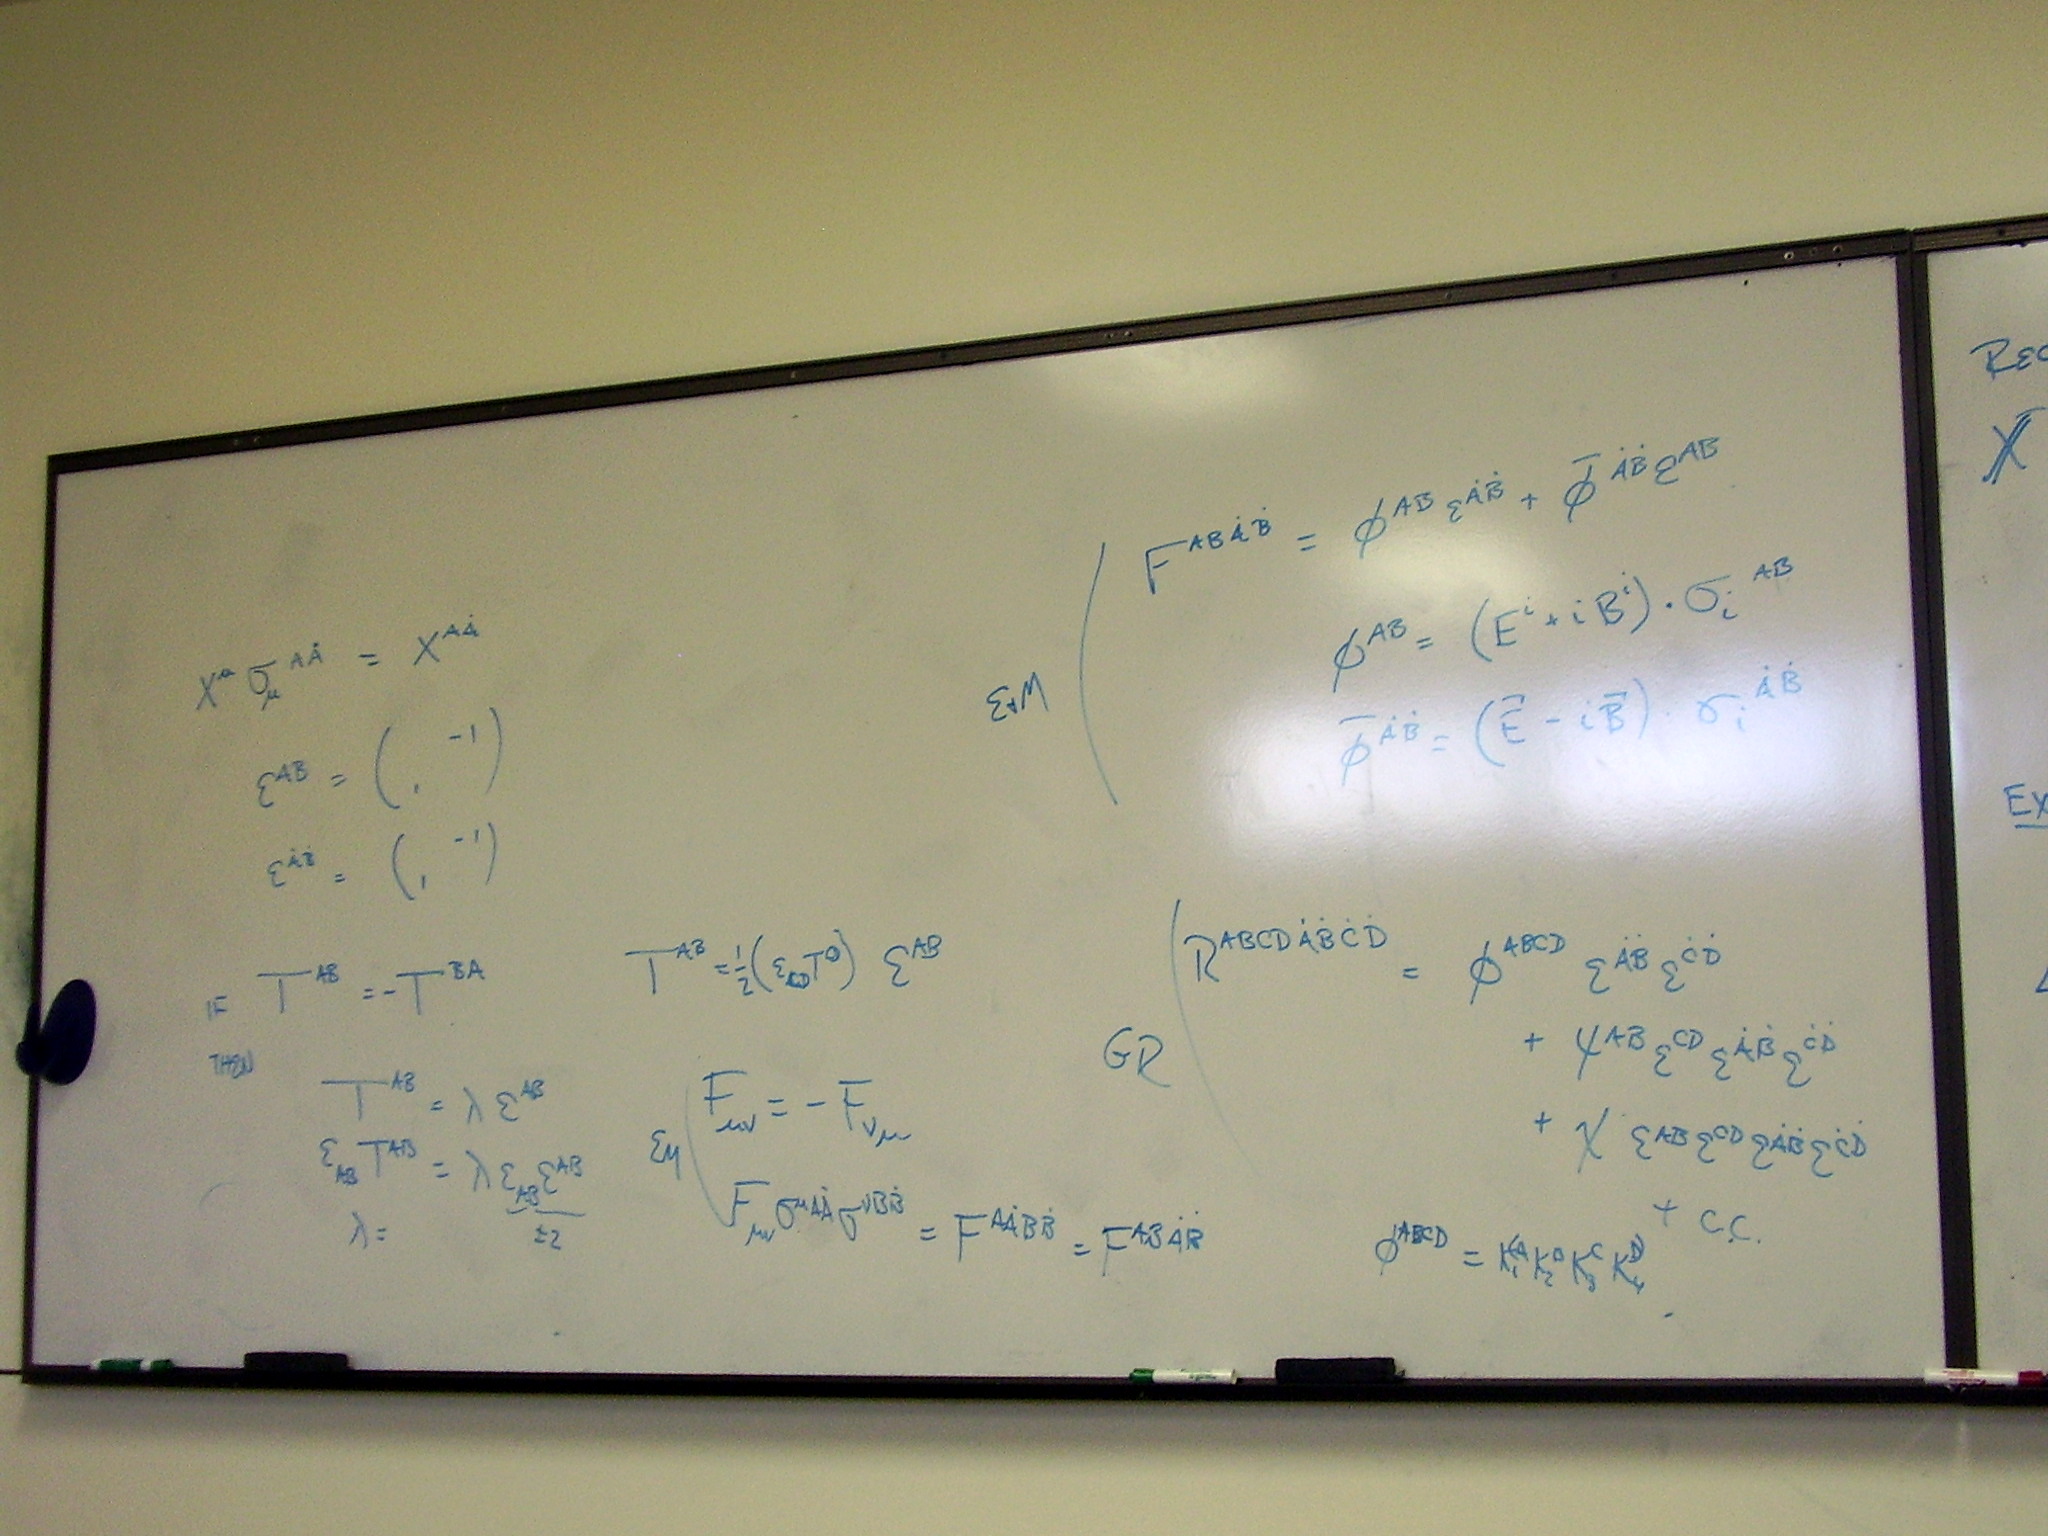 X^μ σ_μ^{AȦ} = X^{AȦ}
ε^{AB} = ( , -1 )
ε^{ȦḂ} = ( , -1 )
IF T^{AB} = -T^{BA}
THEN
T^{AB} = λ ε^{AB}
ε_{AB} T^{AB} = λ ε_{AB} ε^{AB}
λ = ±2
T^{AB} = ½(ε_{CD} T^{CD}) ε^{AB}
EM
F_{μν} = - F_{νμ}
F_{μν} σ^{μAȦ} σ^{νBḂ} = F^{AȦBḂ} = F^{ABȦḂ}
E+M
F^{ABȦḂ} = φ^{AB} ε^{ȦḂ} + φ̄^{ȦḂ} ε^{AB}
φ^{AB} = (E^i + i B^i) · σ_i^{AB}
φ̄^{ȦḂ} = (E⃗ - i B⃗) · σ_i^{ȦḂ}
GR
R^{ABCDȦḂĊḊ} = φ^{ABCD} ε^{ȦḂ} ε^{ĊḊ}
+ ψ^{AB} ε^{CD} ε^{ȦḂ} ε^{ĊḊ}
+ χ ε^{AB} ε^{CD} ε^{ȦḂ} ε^{ĊḊ}
+ C.C.
φ^{ABCD} = K_1^{(A} K_2^B K_3^C K_4^{D)}
REC
X
EX